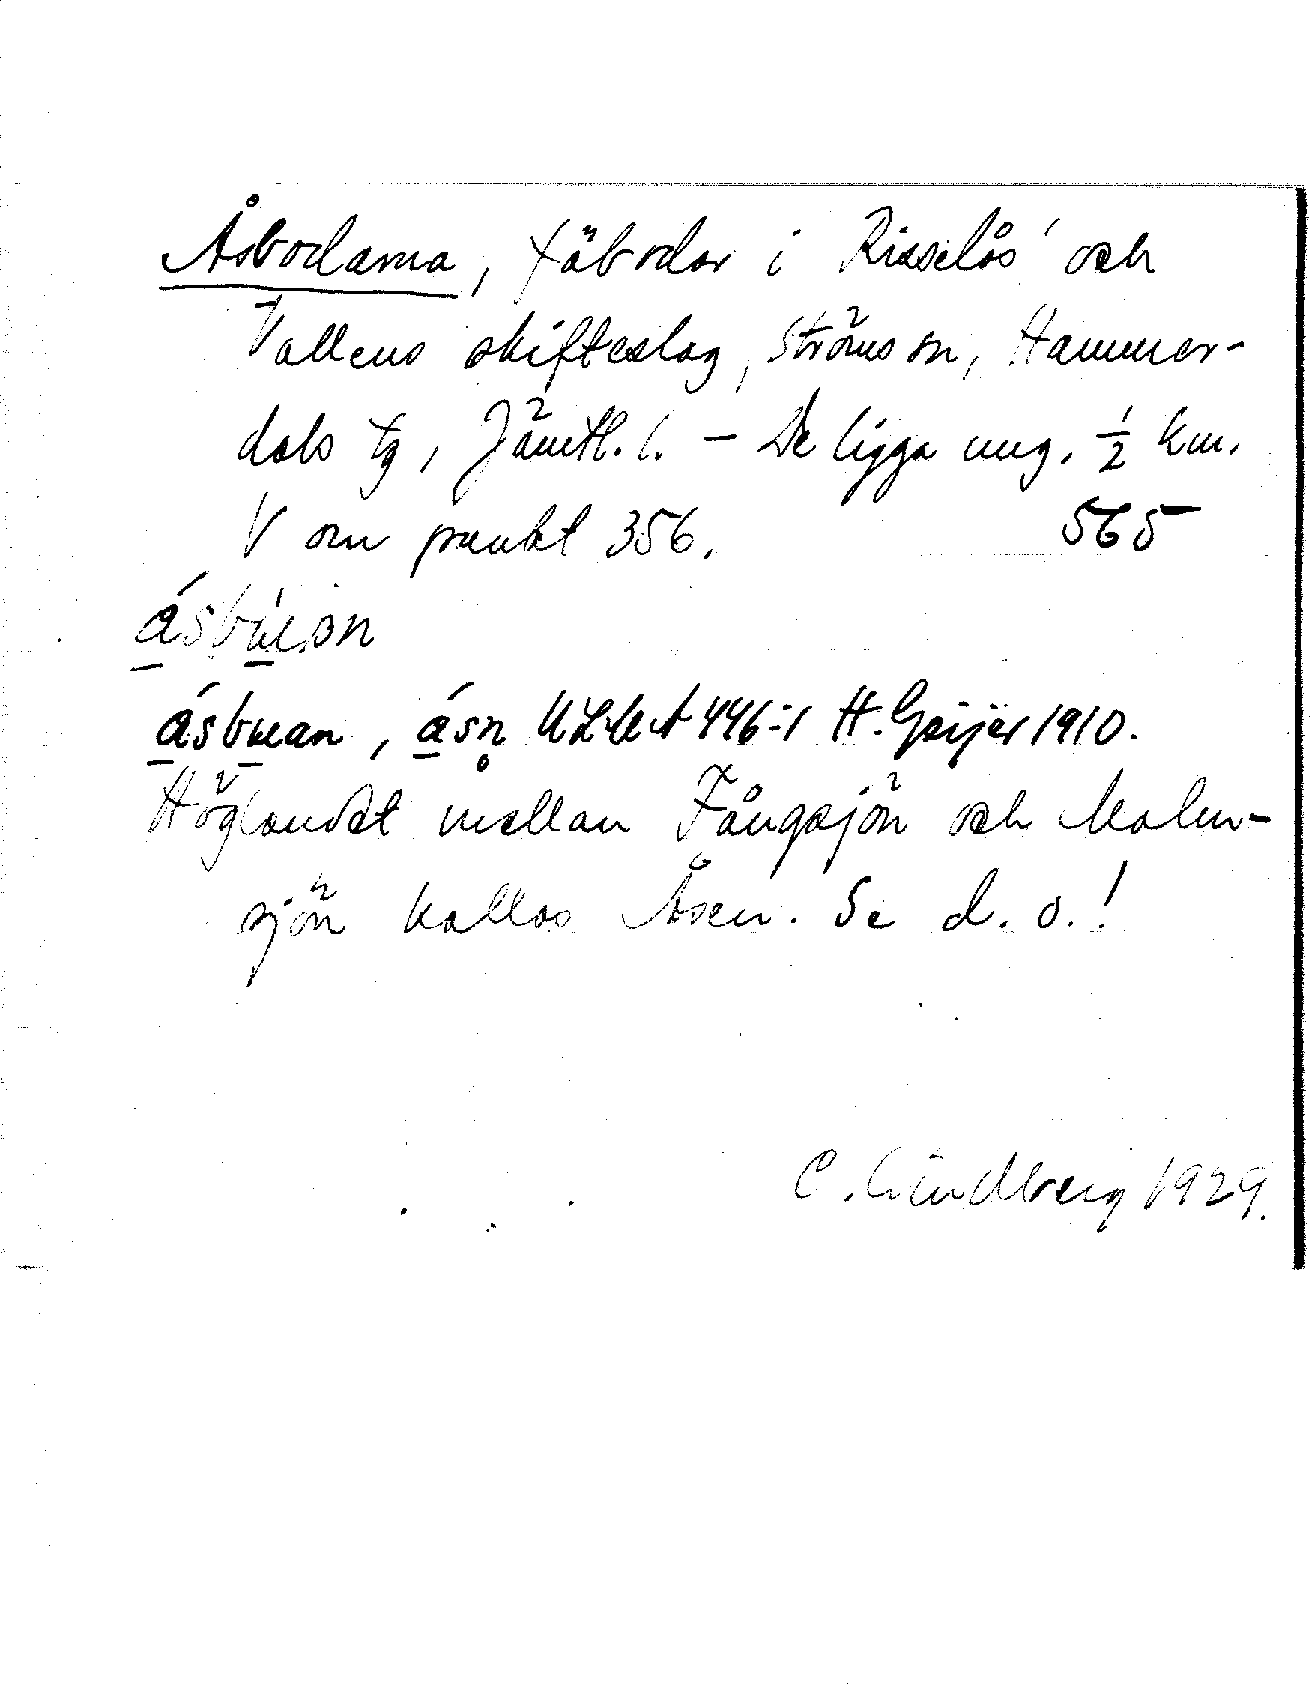 Åsbodarna, fäbodar i Risselås' och
Vallens skifteslag, Ströms sn, Hammer-
dals tg, Jämtl. l. – De ligga ung. ½ km.
V om punkt 356. 565
ásbúean
ásbuean, ásn̥ ULMA 446:1 H. Geijer 1910.
Höglandet mellan Fångsjön och Malm-
sjön kallas Åsen. Se d. o.!
C. Lindberg 1929.